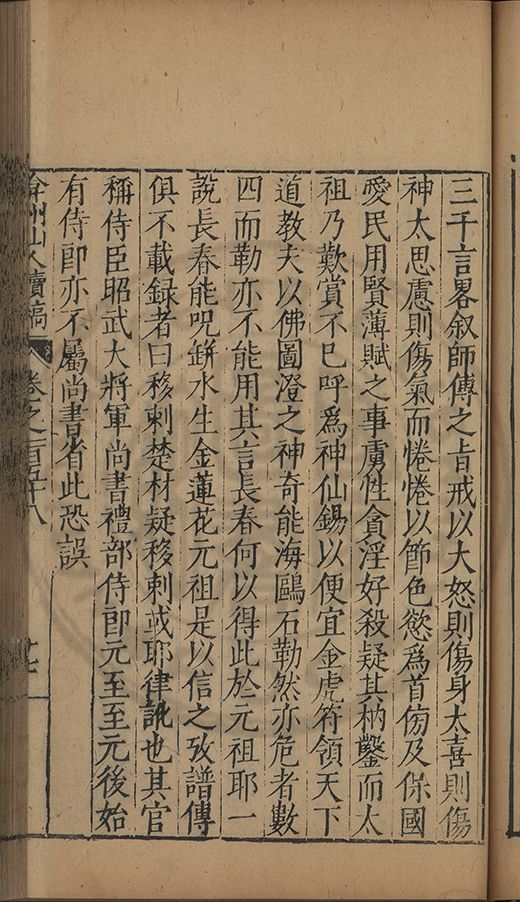 三千言畧叙師傅之旨戒以大怒則傷身太喜則傷
神太思慮則傷氣而惓惓以節色慾爲首傍及保國
愛民用賢薄賦之事虜性貪淫好殺疑其枘鑿而太
祖乃歎賞不已呼爲神仙錫以便宜金虎符領天下
道教夫以佛圖澄之神奇能海鷗石勒然亦危者數
四而勒亦不能用其言長春何以得此於元祖耶一
說長春能呪缾水生金蓮花元祖是以信之攷譜傳
俱不載録者曰移剌楚材疑移剌或耶律訛也其官
稱侍臣昭武大將軍尚書禮部侍郎元至至元後始
有侍郎亦不屬尚書省此恐誤
弇州山人續稿 卷之一百五十八 十七